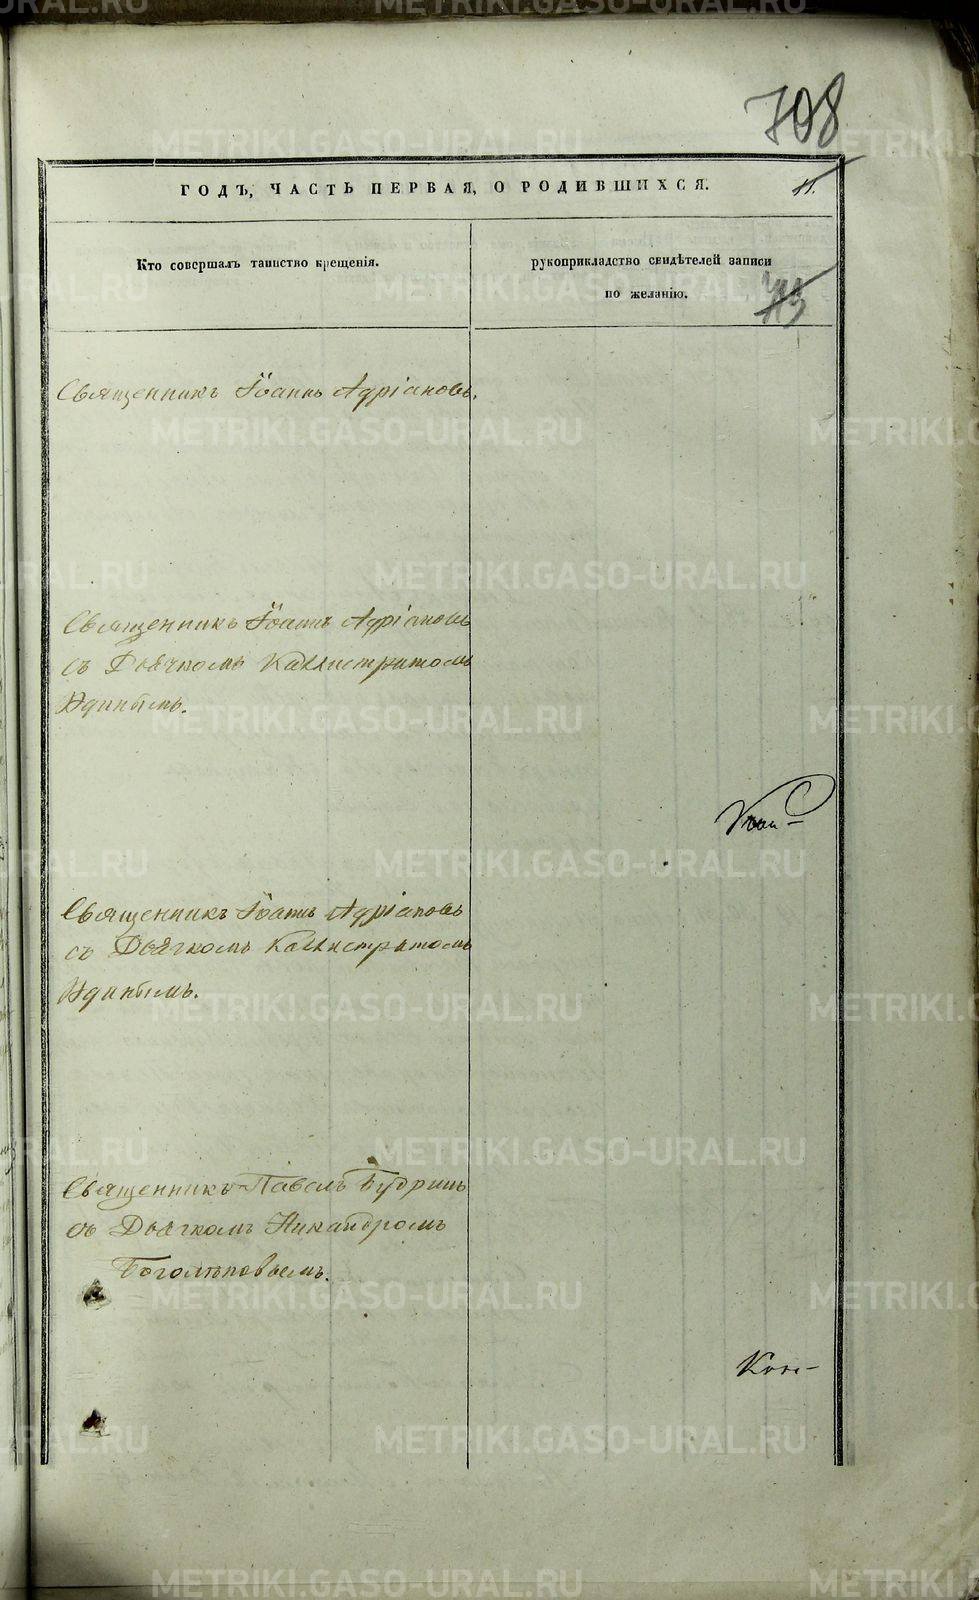 708
ГОДЪ, ЧАСТЬ ПЕРВАЯ, О РОДИВШИХСЯ.
11.
Кто совершалъ таинство крещенія.
рукоприкладство свидѣтелей записи
по желанію.
713
Священникъ Іоаннъ Адріановъ.
Священникъ Іоаннъ Адріановъ
съ Дьячкомъ Каллистратомъ
Священникъ Іоаннъ Адріановъ
съ Дьячкомъ Каллистратомъ
Священникъ Павелъ Будринъ
съ Дьячкомъ Никандромъ
Боголѣповымъ.
METRIKI.GASO-URAL.RU